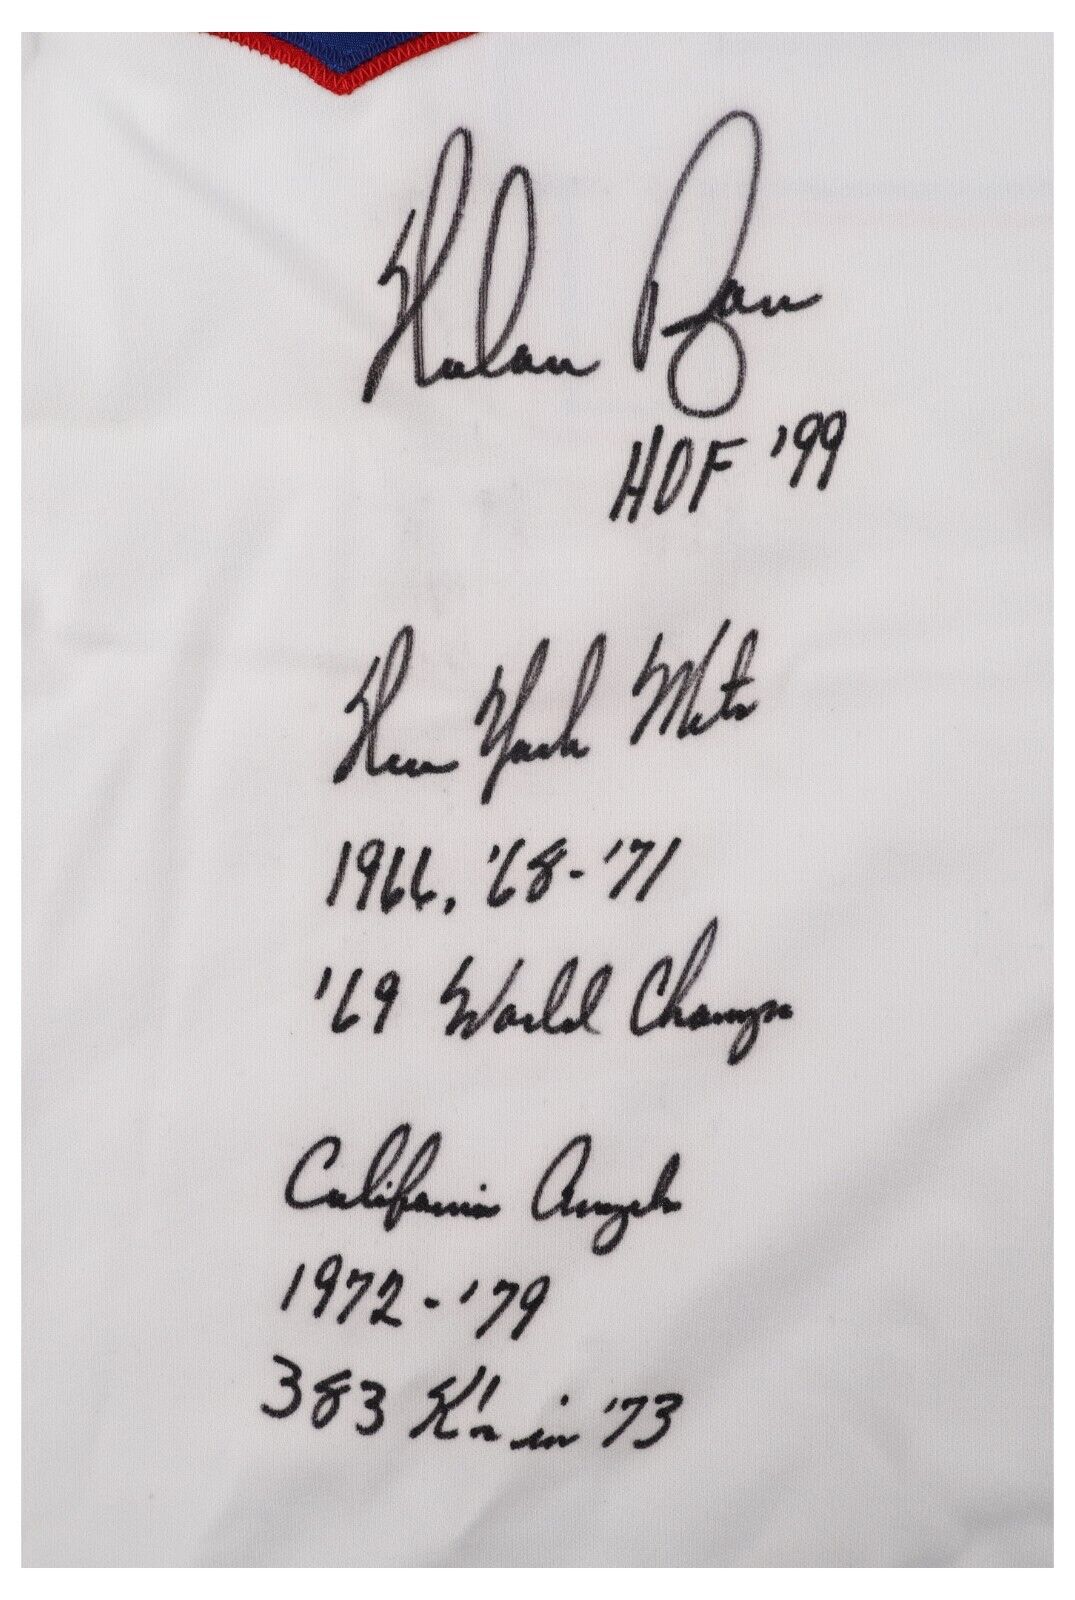 Nolan Ryan
HOF '99
New York Mets
1966, '68-'71
'69 World Champs
California Angels
1972-'79
383 K's in '73